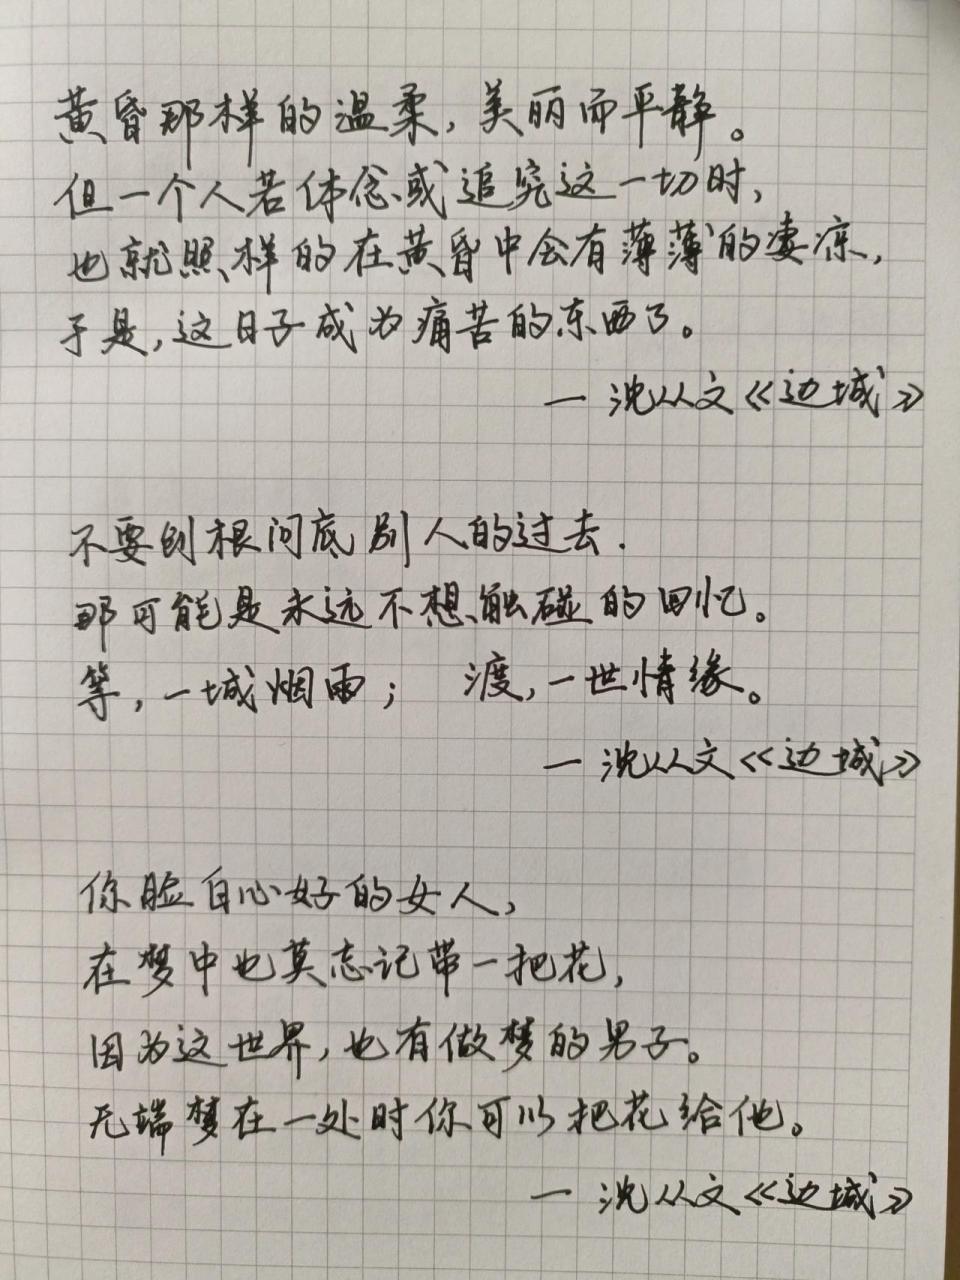 黄昏那样的温柔，美丽而平静。
但一个人若体念或追究这一切时，
也就照样的在黄昏中会有薄薄的凄凉，
于是，这日子成为痛苦的东西了。
— 沈从文《边城》
不要刨根问底别人的过去.
那可能是永远不想触碰的回忆。
等，一城烟雨； 渡，一世情缘。
— 沈从文《边城》
你脸白心好的女人，
在梦中也莫忘记带一把花，
因为这世界，也有做梦的男子。
无端梦在一处时你可以把花给他。
— 沈从文《边城》